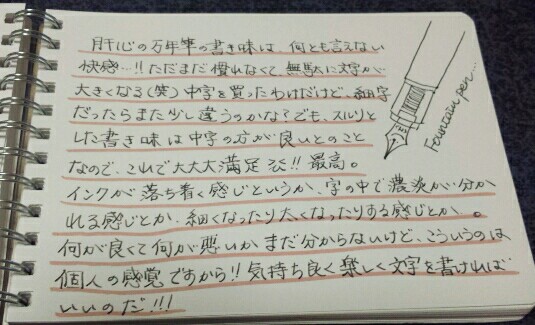 肝心の万年筆の書き味は 何とも言えない
快感…!! ただまだ慣れなくて、無駄に文字が
大きくなる(笑) 中字を買ったわけだけど、細字
だったらまた少し違うのかな？でも、スルリと
した書き味は中字の方が良いとのこと
なので、これで大大大満足!! 最高。
インクが落ち着く感じというか、字の中で濃淡が分か
れる感じとか、細くなったり太くなったりする感じとか。
何が良くて何が悪いかまだ分からないけど、こういうのは
個人の感覚ですから!! 気持ち良く楽しく文字を書ければ
いいのだ!!!
Fountain pen...